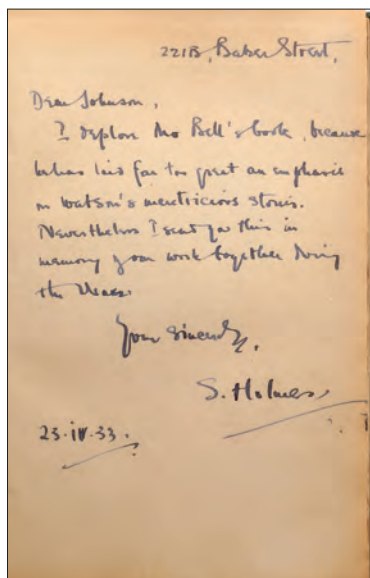 221B, Baker Street,
Dear Johnson,
I deplore Mr Bell's book, because
he has laid far too great an emphasis
on Watson's meretricious stories.
Nevertheless I send you this in
memory of our work together during
the War.
Yours sincerely,
S. Holmes
23.iv.33.